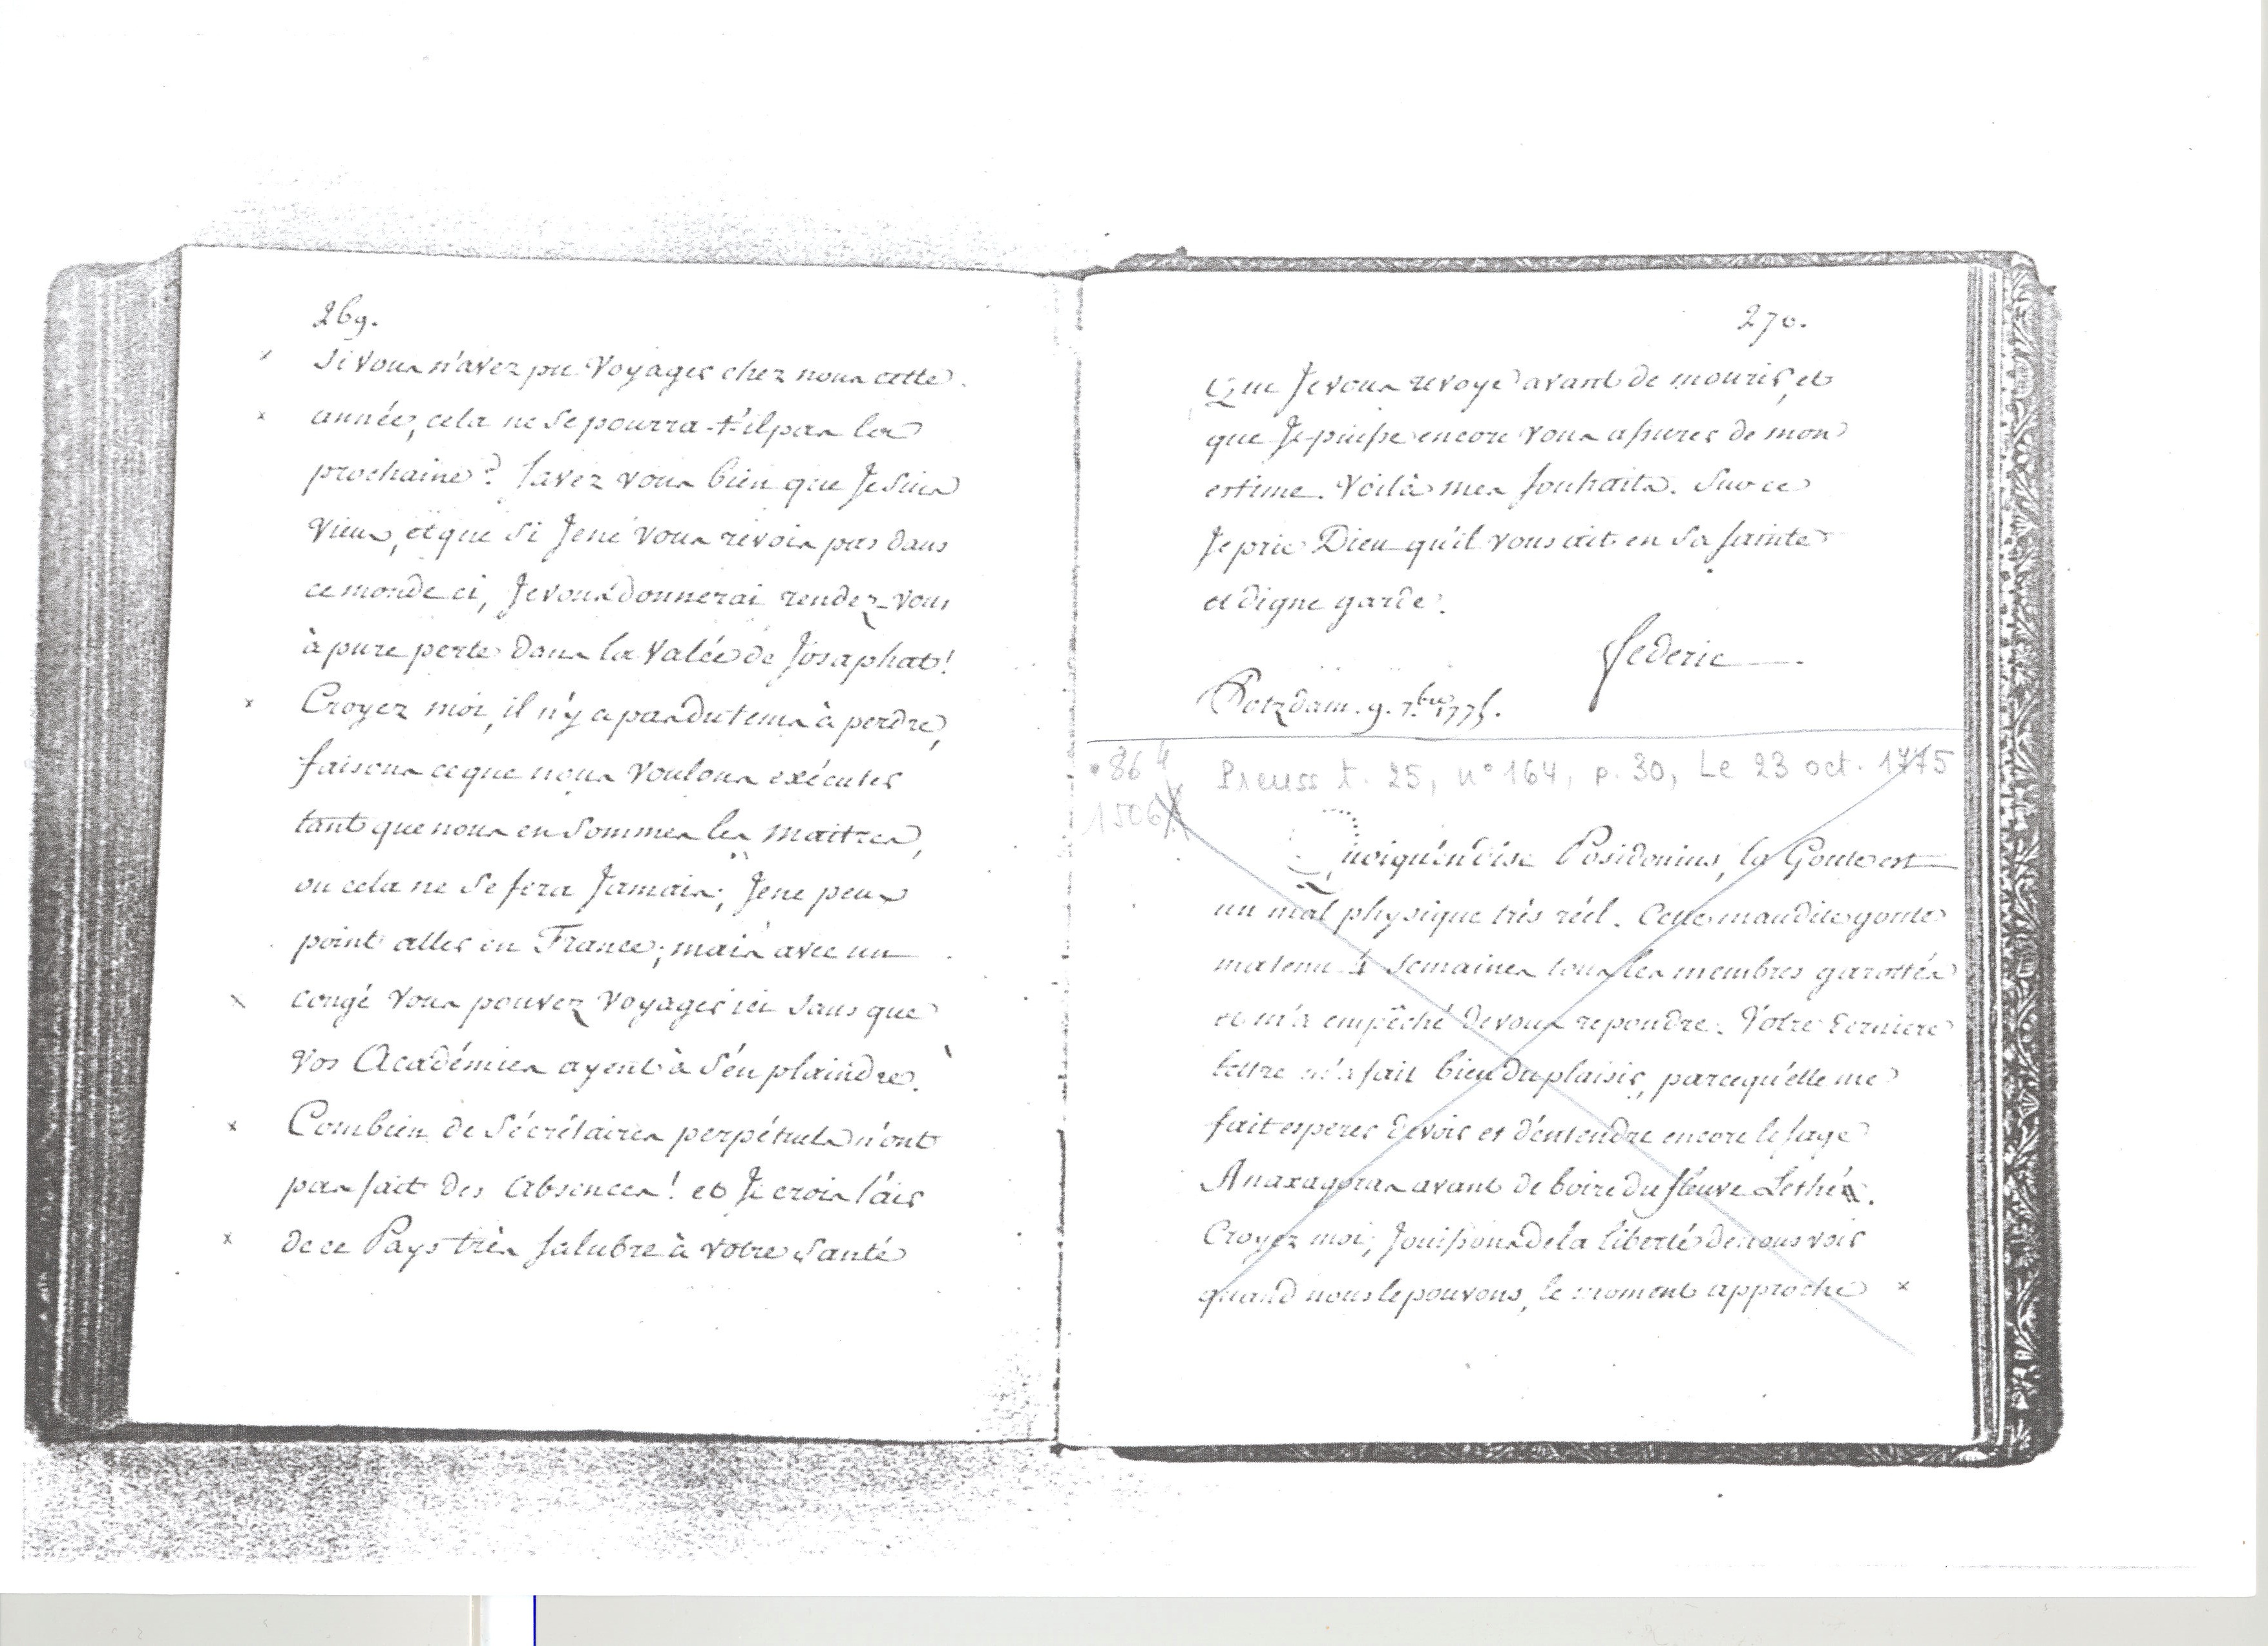 269.
Si vous n'avez pu voyager chez nous cette
année, cela ne se pourra-t'il pas la
prochaine? Savez vous bien que Je suis
vieux, et que si Je ne vous revois pas dans
ce monde ci, Je vous donnerai rendez-vous
à pure perte dans la Valée de Josaphat!
Croyez moi, il n'y a pas du tems à perdre,
faisons ce que nous voulons exécuter
tant que nous en sommes les maitres,
ou cela ne se fera Jamais; Je ne peux
point aller en France; mais avec un
congé vous pouvez voyager ici sans que
vos Académies ayent à s'en plaindre.
Combien de Sécrétaires perpétuels n'ont
pas fait des absences! et Je crois l'air
de ce Pays très salubre à votre santé
270.
Que Je vous revoye avant de mourir, et
que Je puisse encore vous assurer de mon
estime. Voilà mes souhaits. Sur ce
Je prie Dieu qu'il vous ait en sa sainte
et digne garde.
Federic
Potzdam. 9. 7.bre 1775.
86 4
1506
Preuss t. 25, n° 164, p. 30, Le 23 oct. 1775
Quoiqu'en dise Posidonius, la Goute est
un mal physique très réel. Cette maudite goute
m'a tenu 4 semaines tous les membres garottés
et m'a empêché de vous repondre. Votre derniere
lettre m'a fait bien du plaisir, parcequ'elle me
fait esperer de voir et d'entendre encore le sage
Anaxagoras avant de boire du fleuve Lethé.
Croyez moi, Jouissons de la liberté de nous voir
quand nous le pouvons, le moment approche